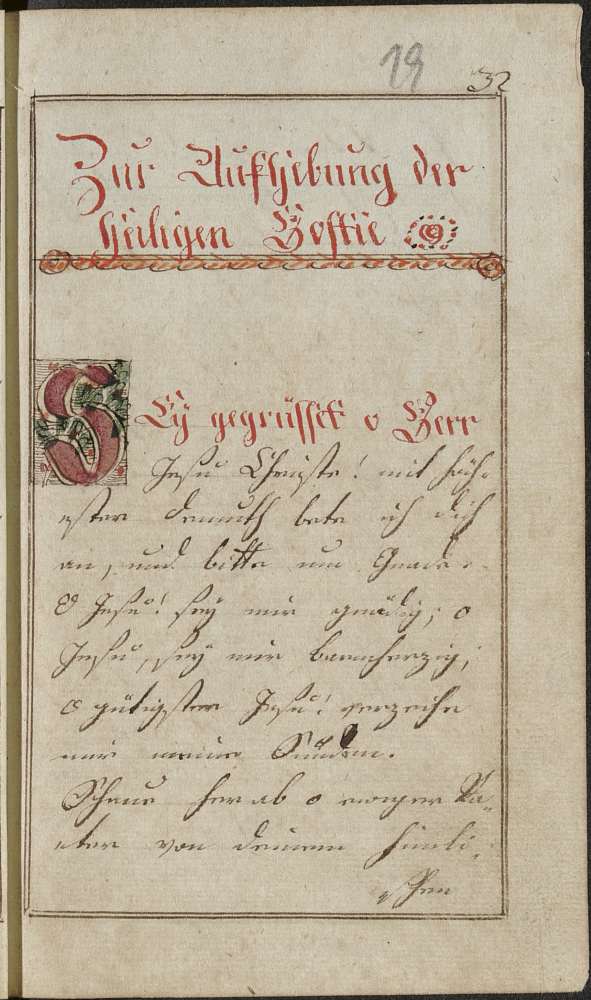 19
32
Zur Aufhebung der
heiligen Hostie
Sey gegrüsset o Herr
Jesu Christe! mit höch-
ester Demuth bete ich dich
an, und bitte um Gnade.
O Jesu! sey mir gnädig; o
Jesu, sey mir barmherzig,
o gütigster Jesu! verzeihe
mir meine Sünden.
Schaue herab o ewiger Va-
ter von deinem himli-
schen